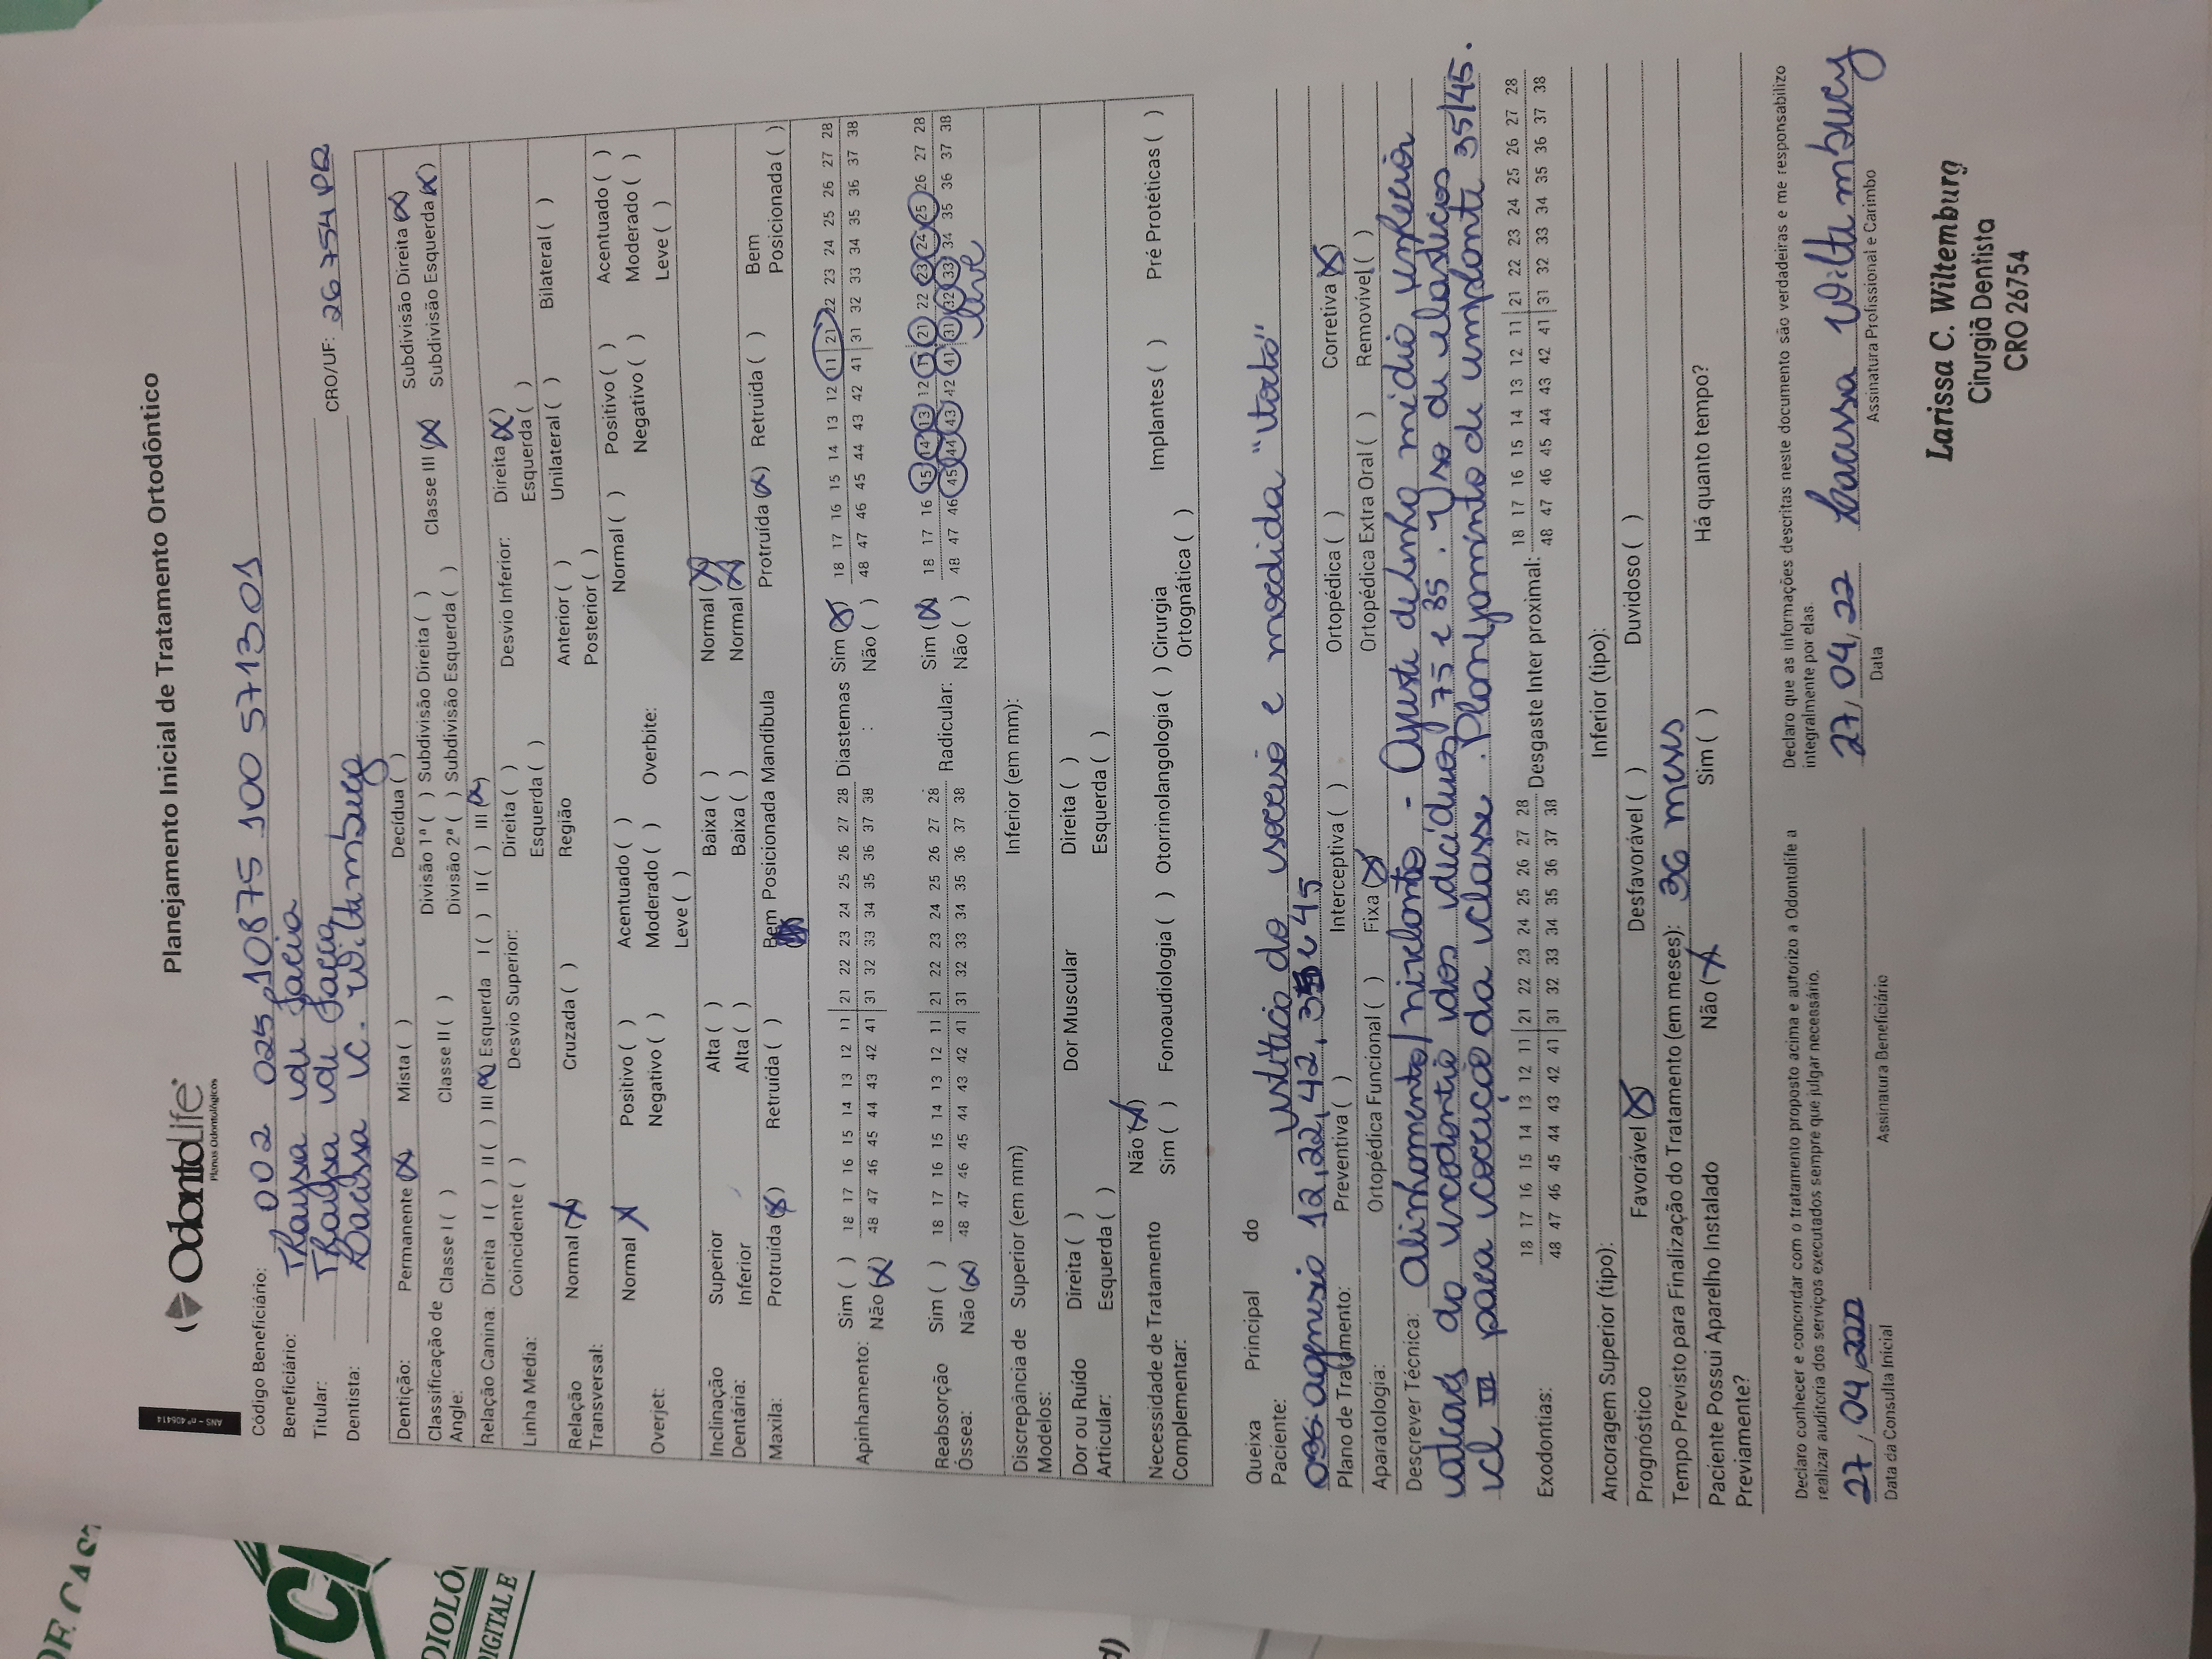 ANS - nº 406414
OdontoLife
Planos Odontológicos
Planejamento Inicial de Tratamento Ortodôntico
Código Beneficiário: 002 025 10875 100 5713 01
Beneficiário: Thaysa de
Titular: Thaysa de
Dentista: Larissa C. Wiltemburg CRO/UF: 26754 PR
Dentição: Permanente (X) Mista ( ) Decídua ( )
Classificação de Angle: Classe I ( ) Classe II ( ) Divisão 1ª ( ) Subdivisão Direita ( ) Classe III (X) Subdivisão Direita (X)
Divisão 2ª ( ) Subdivisão Esquerda ( ) Subdivisão Esquerda (X)
Relação Canina: Direita I ( ) II ( ) III (X) Esquerda I ( ) II ( ) III (X)
Linha Média: Coincidente ( ) Desvio Superior: Direita ( ) Desvio Inferior: Direita (X)
Esquerda ( ) Esquerda ( )
Relação Transversal: Normal (X) Cruzada ( ) Região Anterior ( ) Unilateral ( ) Bilateral ( )
Posterior ( )
Overjet: Normal X Positivo ( ) Acentuado ( ) Overbite: Normal ( ) Positivo ( ) Acentuado ( )
Negativo ( ) Moderado ( ) Negativo ( ) Moderado ( )
Leve ( ) Leve ( )
Inclinação Dentária: Superior Alta ( ) Baixa ( ) Normal (X)
Inferior Alta ( ) Baixa ( ) Normal (X)
Maxila: Protruída (X) Retruída ( ) Bem Posicionada Mandíbula Protruída (X) Retruída ( ) Bem Posicionada ( )
Apinhamento: Sim ( ) 18 17 16 15 14 13 12 11 | 21 22 23 24 25 26 27 28 Diastemas : Sim (X) 18 17 16 15 14 13 12 11 | 21 22 23 24 25 26 27 28
Não (X) 48 47 46 45 44 43 42 41 | 31 32 33 34 35 36 37 38 Não ( ) 48 47 46 45 44 43 42 41 | 31 32 33 34 35 36 37 38
Reabsorção Óssea: Sim ( ) 18 17 16 15 14 13 12 11 | 21 22 23 24 25 26 27 28 Radicular: Sim (X) 18 17 16 15 14 13 12 11 | 21 22 23 24 25 26 27 28
Não (X) 48 47 46 45 44 43 42 41 | 31 32 33 34 35 36 37 38 Não ( ) 48 47 46 45 44 43 42 41 | 31 32 33 34 35 36 37 38
leve
Discrepância de Modelos: Superior (em mm) Inferior (em mm):
Dor ou Ruído Articular: Direita ( ) Dor Muscular Direita ( )
Esquerda ( ) Esquerda ( )
Necessidade de Tratamento Complementar: Não (X)
Sim ( ) Fonoaudiologia ( ) Otorrinolangologia ( ) Cirurgia Ortognática ( ) Implantes ( ) Pré Protéticas ( )
Queixa Principal do Paciente: estética do sorriso e mordida "torta"
agenesia 12, 22, 42, 35 e 45
Plano de Tratamento: Preventiva ( ) Interceptiva ( ) Ortopédica ( ) Corretiva (X)
Aparatologia: Ortopédica Funcional ( ) Fixa (X) Ortopédica Extra Oral ( ) Removível ( )
Descrever Técnica: Alinhamento/nivelamento - Ajuste de linha média inferior
através da exodontia dos decíduos 75 e 85. Uso de elásticos
cl III para correção da classe. Planejamento de implante 35/45.
Exodontias: 18 17 16 15 14 13 12 11 | 21 22 23 24 25 26 27 28 Desgaste Inter proximal: 18 17 16 15 14 13 12 11 | 21 22 23 24 25 26 27 28
48 47 46 45 44 43 42 41 | 31 32 33 34 35 36 37 38 48 47 46 45 44 43 42 41 | 31 32 33 34 35 36 37 38
Ancoragem Superior (tipo): Inferior (tipo):
Prognóstico Favorável (X) Desfavorável ( ) Duvidoso ( )
Tempo Previsto para Finalização do Tratamento (em meses): 36 meses
Paciente Possui Aparelho Instalado Previamente? Não (X) Sim ( ) Há quanto tempo?
Declaro conhecer e concordar com o tratamento proposto acima e autorizo a Odontolife a
realizar auditoria dos serviços executados sempre que julgar necessário.
27/04/2022
Data da Consulta Inicial Assinatura Beneficiário
Declaro que as informações descritas neste documento são verdadeiras e me responsabilizo
integralmente por elas.
27/04/22 Larissa Wiltemburg
Data Assinatura Profissional e Carimbo
Larissa C. Wiltemburg
Cirurgiã Dentista
CRO 26754